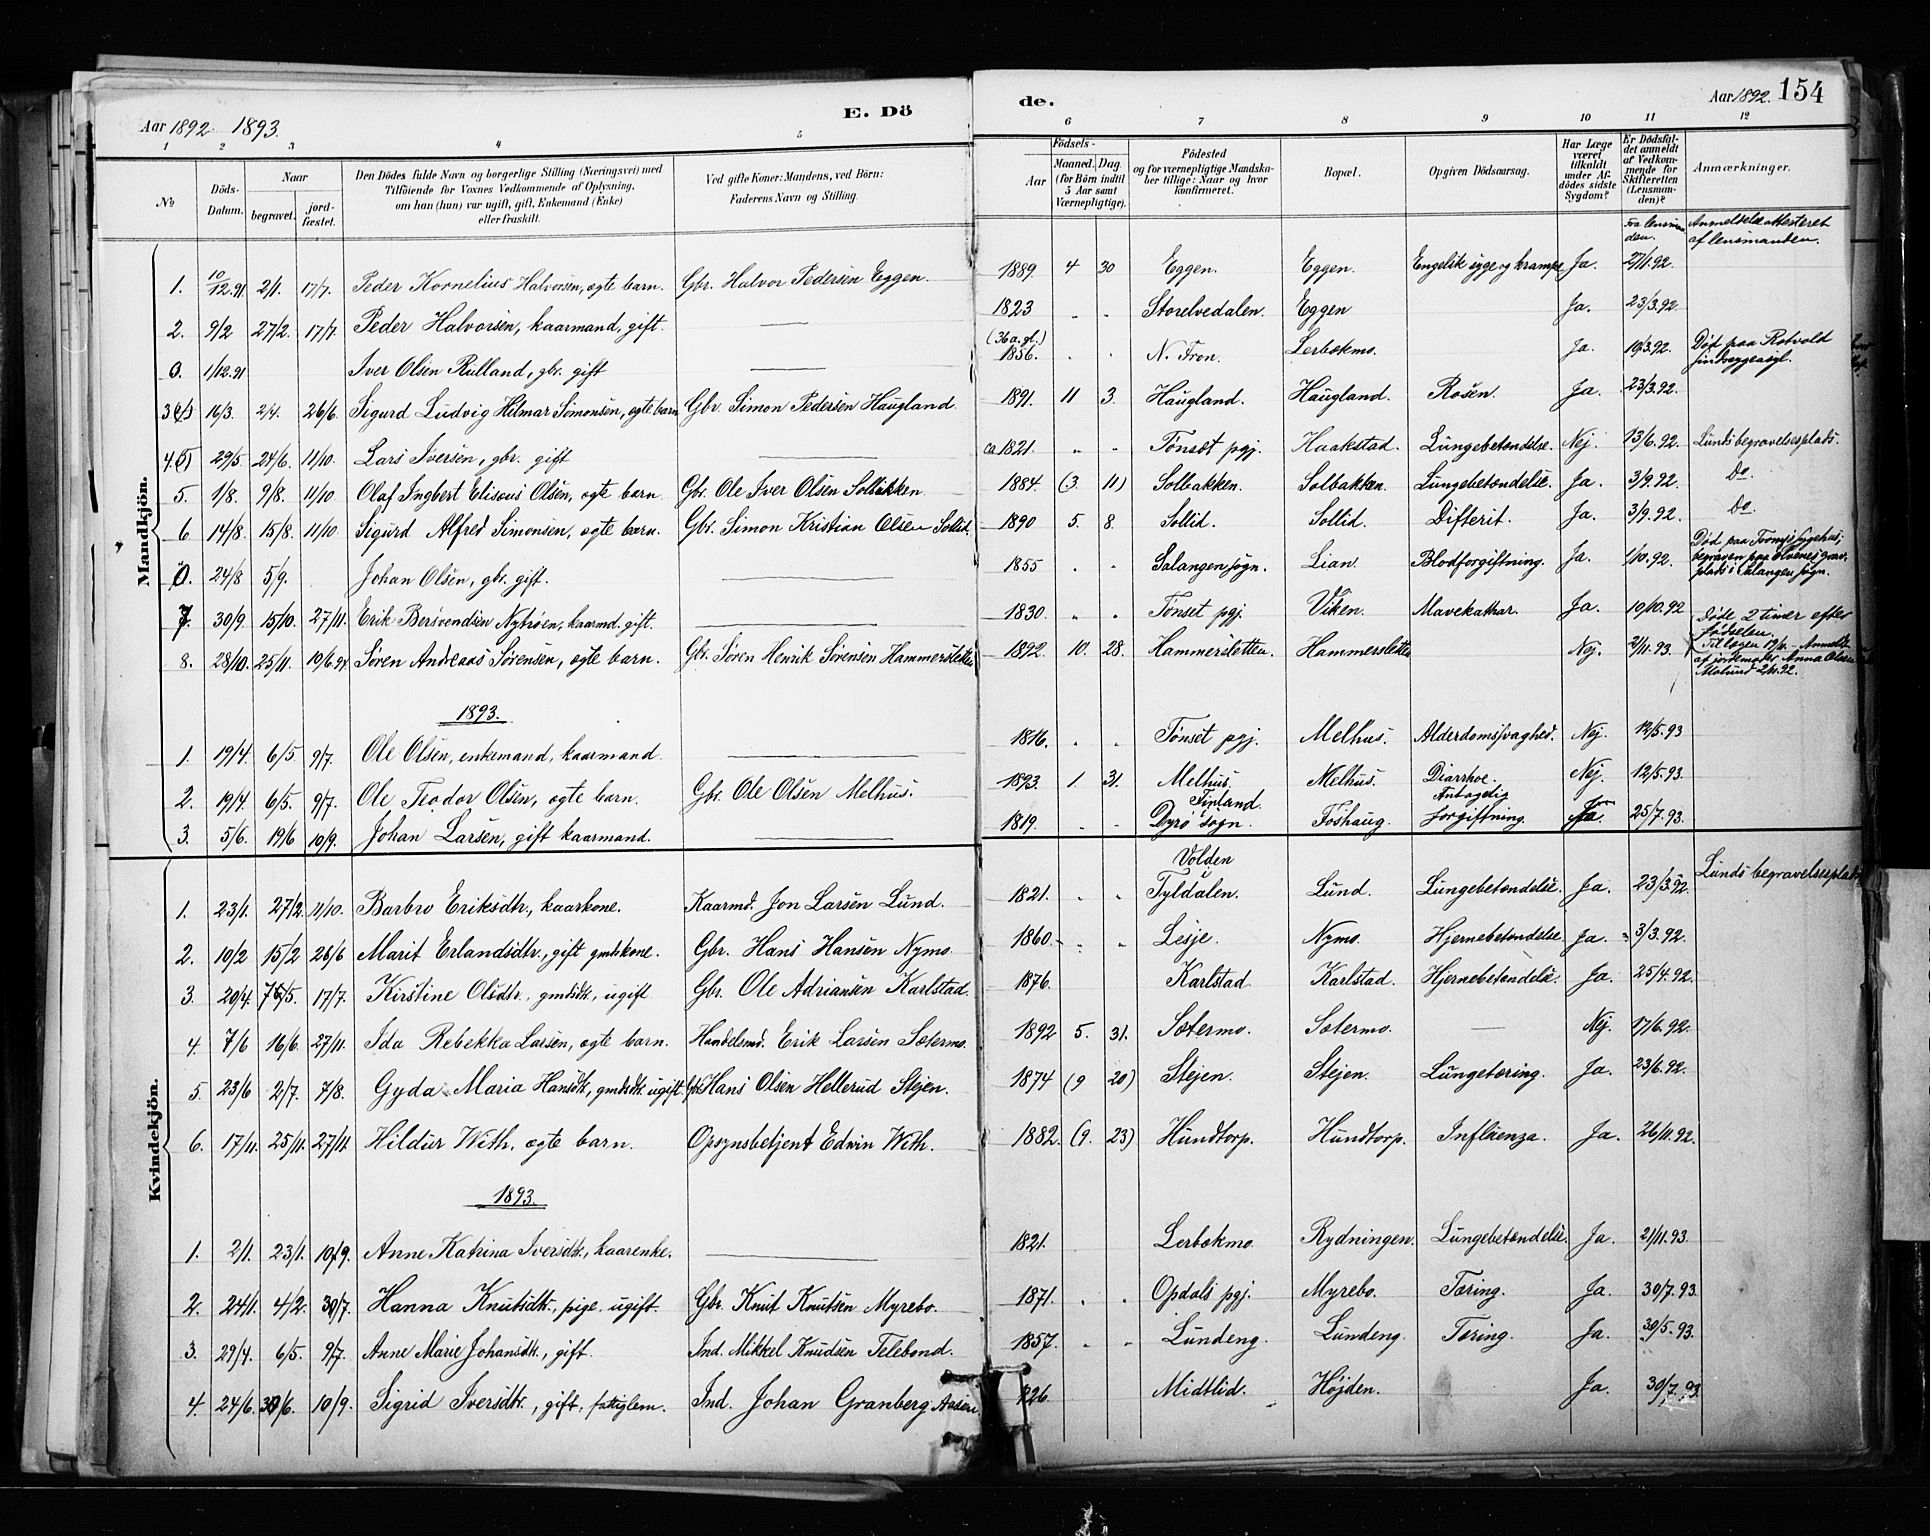 Aar 1892 1893.
E. Dö
de.
Aar 1892. 154
1 2 3 4 5 6 7 8 9 10 11 12
№
Döds-Datum.
Naar
begravet.
jord-fæstet.
Den Dödes fulde Navn og borgerlige Stilling (Næringsvei) med
Tilföiende for Voxnes Vedkommende af Oplysning,
om han (hun) var ugift, gift, Enkemand (Enke)
eller fraskilt.
Ved gifte Koner: Mandens, ved Börn:
Faderens Navn og Stilling.
Födsels-
Aar
Maaned. Dag
(for Börn indtil
5 Aar samt
Værnepligtige).
Födested
og for værnepligtige Mandska-
ber tillige: Naar og hvor
konfirmeret.
Bopæl.
Opgiven Dödsaarsag.
Har Læge
været
tilkaldt
under Af-
dödes sidste
Sygdom?
Er Dödsfal-
det anmeldt
af Vedkom-
mende for
Skifteretten
(Lensman-
den)?
Anmærkninger.
Fra lensman-
den.
Anmeldelse attesteret
af lensmanden.
Mandkjön.
1. 10/12.91 2/1. 17/7. Peder Kornelius Halvorsen, ægte barn. Gbr. Halvor Pedersen Eggen. 1889 4 30 Eggen. Eggen. Engelsk syge og krampe Ja. 27/1.92.
2. 9/2 27/2. 17/7. Peder Halvorsen, kaarmand, gift. 1823 Storelvedalen. Eggen Ja. 23/3.92.
0. 1/12.91 Iver Olsen Rulland, gbr. gift (36 a. gl.) 1856. N. Fron. Lerbækmo. Ja. 19/3.92. Död paa Rotvold sindssygeasyl.
3 16/3. 2/4. 26/6. Sigurd Ludvig Hilmar Simonsen, ægte barn Gbr. Simon Pedersen Haugland. 1891. 11 3. Haugland. Haugland. Rosen. Ja. 23/3.92.
4. 29/5. 24/6. 11/10. Lars Iversen, gbr. gift ca 1821. Tønset pgj. Haakstad. Lungebetændelse. Nej. 13/6.92. Lunds begravelsesplads.
5. 1/8. 9/8. 11/10. Olaf Ingbert Eliseus Olsen, ægte barn. Gbr. Ole Iver Olsen Solbakken. 1884 (3. 11) Solbakken. Solbakken. Lungebetændelse. Ja. 3/9.92. Do.
6 14/8. 15/8. 11/10. Sigurd Alfred Simonsen, ægte barn. Gbr. Simon Kristian Olsen Sollid. 1890 5. 8. Sollid. Sollid. Difterit. Ja. 3/9.92. Do
0. 24/8 5/9. Johan Olsen, gbr. gift. 1855 Salangen sogn. Lian. Blodforgiftning. Ja. 1/10.92. Død paa Tromsø sygehus, begraven paa Elvenes grav-plads i Salangen sogn.
7. 30/9. 15/10. 27/11. Erik Bersvendsen Nytrøen, kaarmd. gift. 1830. Tønset pgj. Viken. Mavekathar. Ja. 10/10.92
8. 28/10. 25/11. 10/6.94. Søren Andreas Sørensen, ægte barn. Gbr. Søren Henrik Sørensen Hammersletten 1892. 10. 28. Hammersletten. Hammersletten Nej. 2/11.93. Døde 2 timer efter fødselen. Anmeldt af jordemoder Anna Olsen Molund 2/11.92.
1893.
1. 19/4. 6/5. 9/7. Ole Olsen, enkemand, kaarmand. 1816. Tønset pgj. Melhus. Alderdomssvaghed. Nej. 12/5.93
2. 19/4. 6/5. 9/7. Ole Teodor Olsen, ægte barn. Gbr. Ole Olsen Melhus. 1893. 1. 31. Melhus. Melhus. Diarrhoe. Nej. 12/5.93.
3. 5/6. 19/6 10/9. Johan Larsen, gift kaarmand. 1819. Finland. Dyrø sogn. Foshaug. Antagelig forgiftning. Ja. 25/7.93.
Kvindekjön.
1. 23/1. 27/2. 11/10. Barbro Eriksdtr., kaarkone. Kaarmd. Jon Larsen Lund. 1821. Volden Tyldalen. Lund. Lungebetændelse. Ja. 23/3.92. Lunds begravelsesplads
2. 10/2 15/2 26/6 Marit Erlandsdtr., gift gmdskone. Gbr. Hans Hansen Nymo 1860. Lesje. Nymo. Hjernebetændelse. Ja. 3/3.92.
3. 20/4. 7/5. 17/7. Kirstine Olsdtr. gmdsdtr., ugift Gbr. Ole Adriansen Karlstad. 1876. Karlstad. Karlstad. Hjernebetændelse. Ja. 25/4.92.
4. 7/6 16/6. 27/11. Ida Rebekka Larsen, ægte barn. Handelsmd. Erik Larsen Sætermo. 1892 5. 31. Sætermo. Sætermo. Nej. 17/6.92.
5. 23/6 2/7. 7/8. Gyda Maria Hansdtr., gmdsdtr. ugift Gbr. Hans Olsen Hellerud Stejen. 1874 (9 20) Stejen. Stejen. Lungetæring. Ja. 23/6.92.
6. 17/11. 25/11. 27/11. Hildur With, ægte barn. Opsynsbetjent Edwin With. 1882. (9. 23) Hundtorp. Hundtorp. Influenza. Ja. 26/11.92.
1893.
1. 2/1. 23/1. 10/9. Anne Katrina Iversdtr., kaarenke. 1821. Lerbækmo. Rydningen. Lungebetændelse. Ja. 21/11.93.
2. 24/1. 4/2. 30/7. Hanna Knutsdtr., pige, ugift. Gbr. Knut Knutsen Myrebo. 1871. Opdals pgj. Myrebo. Tæring. Ja. 30/7.93.
3. 29/4. 6/5. 9/7. Anne Marie Johansdtr., gift. Ind. Mikkel Knudsen Telebond. 1857. Lundeng. Lundeng. Tæring. Ja. 30/5.93.
4. 24/6. 30/6. 10/9. Sigrid Iversdtr., gift, fattiglem. Ind. Johan Granberg Aasen 1826. Midtlid. Højden. Ja. 30/7.93.